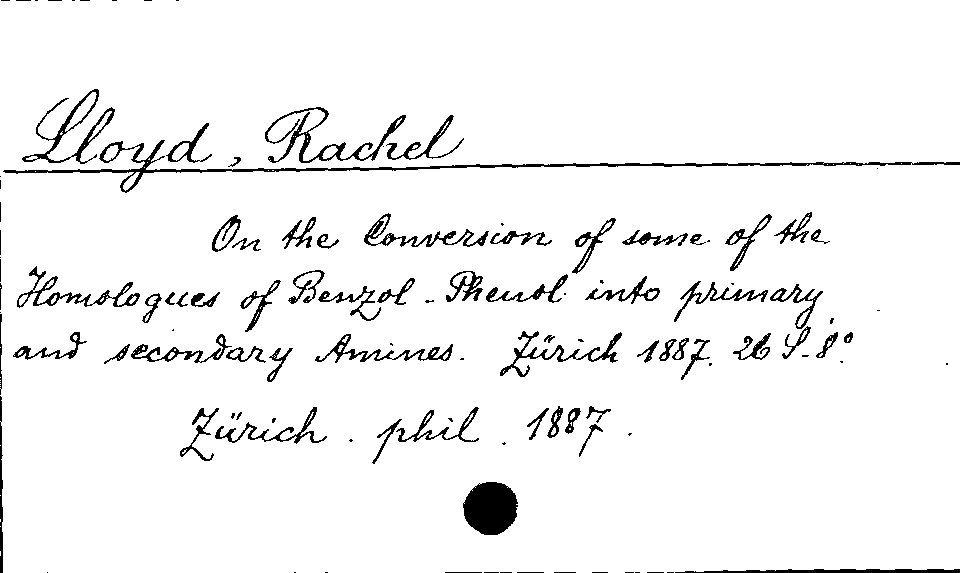 Lloyd, Rachel
On the Conversion of some of the
Homologues of Benzol-Phenol into primary
and secondary Amines. Zürich 1887. 26 S. 8°.
Zürich. phil. 1887.